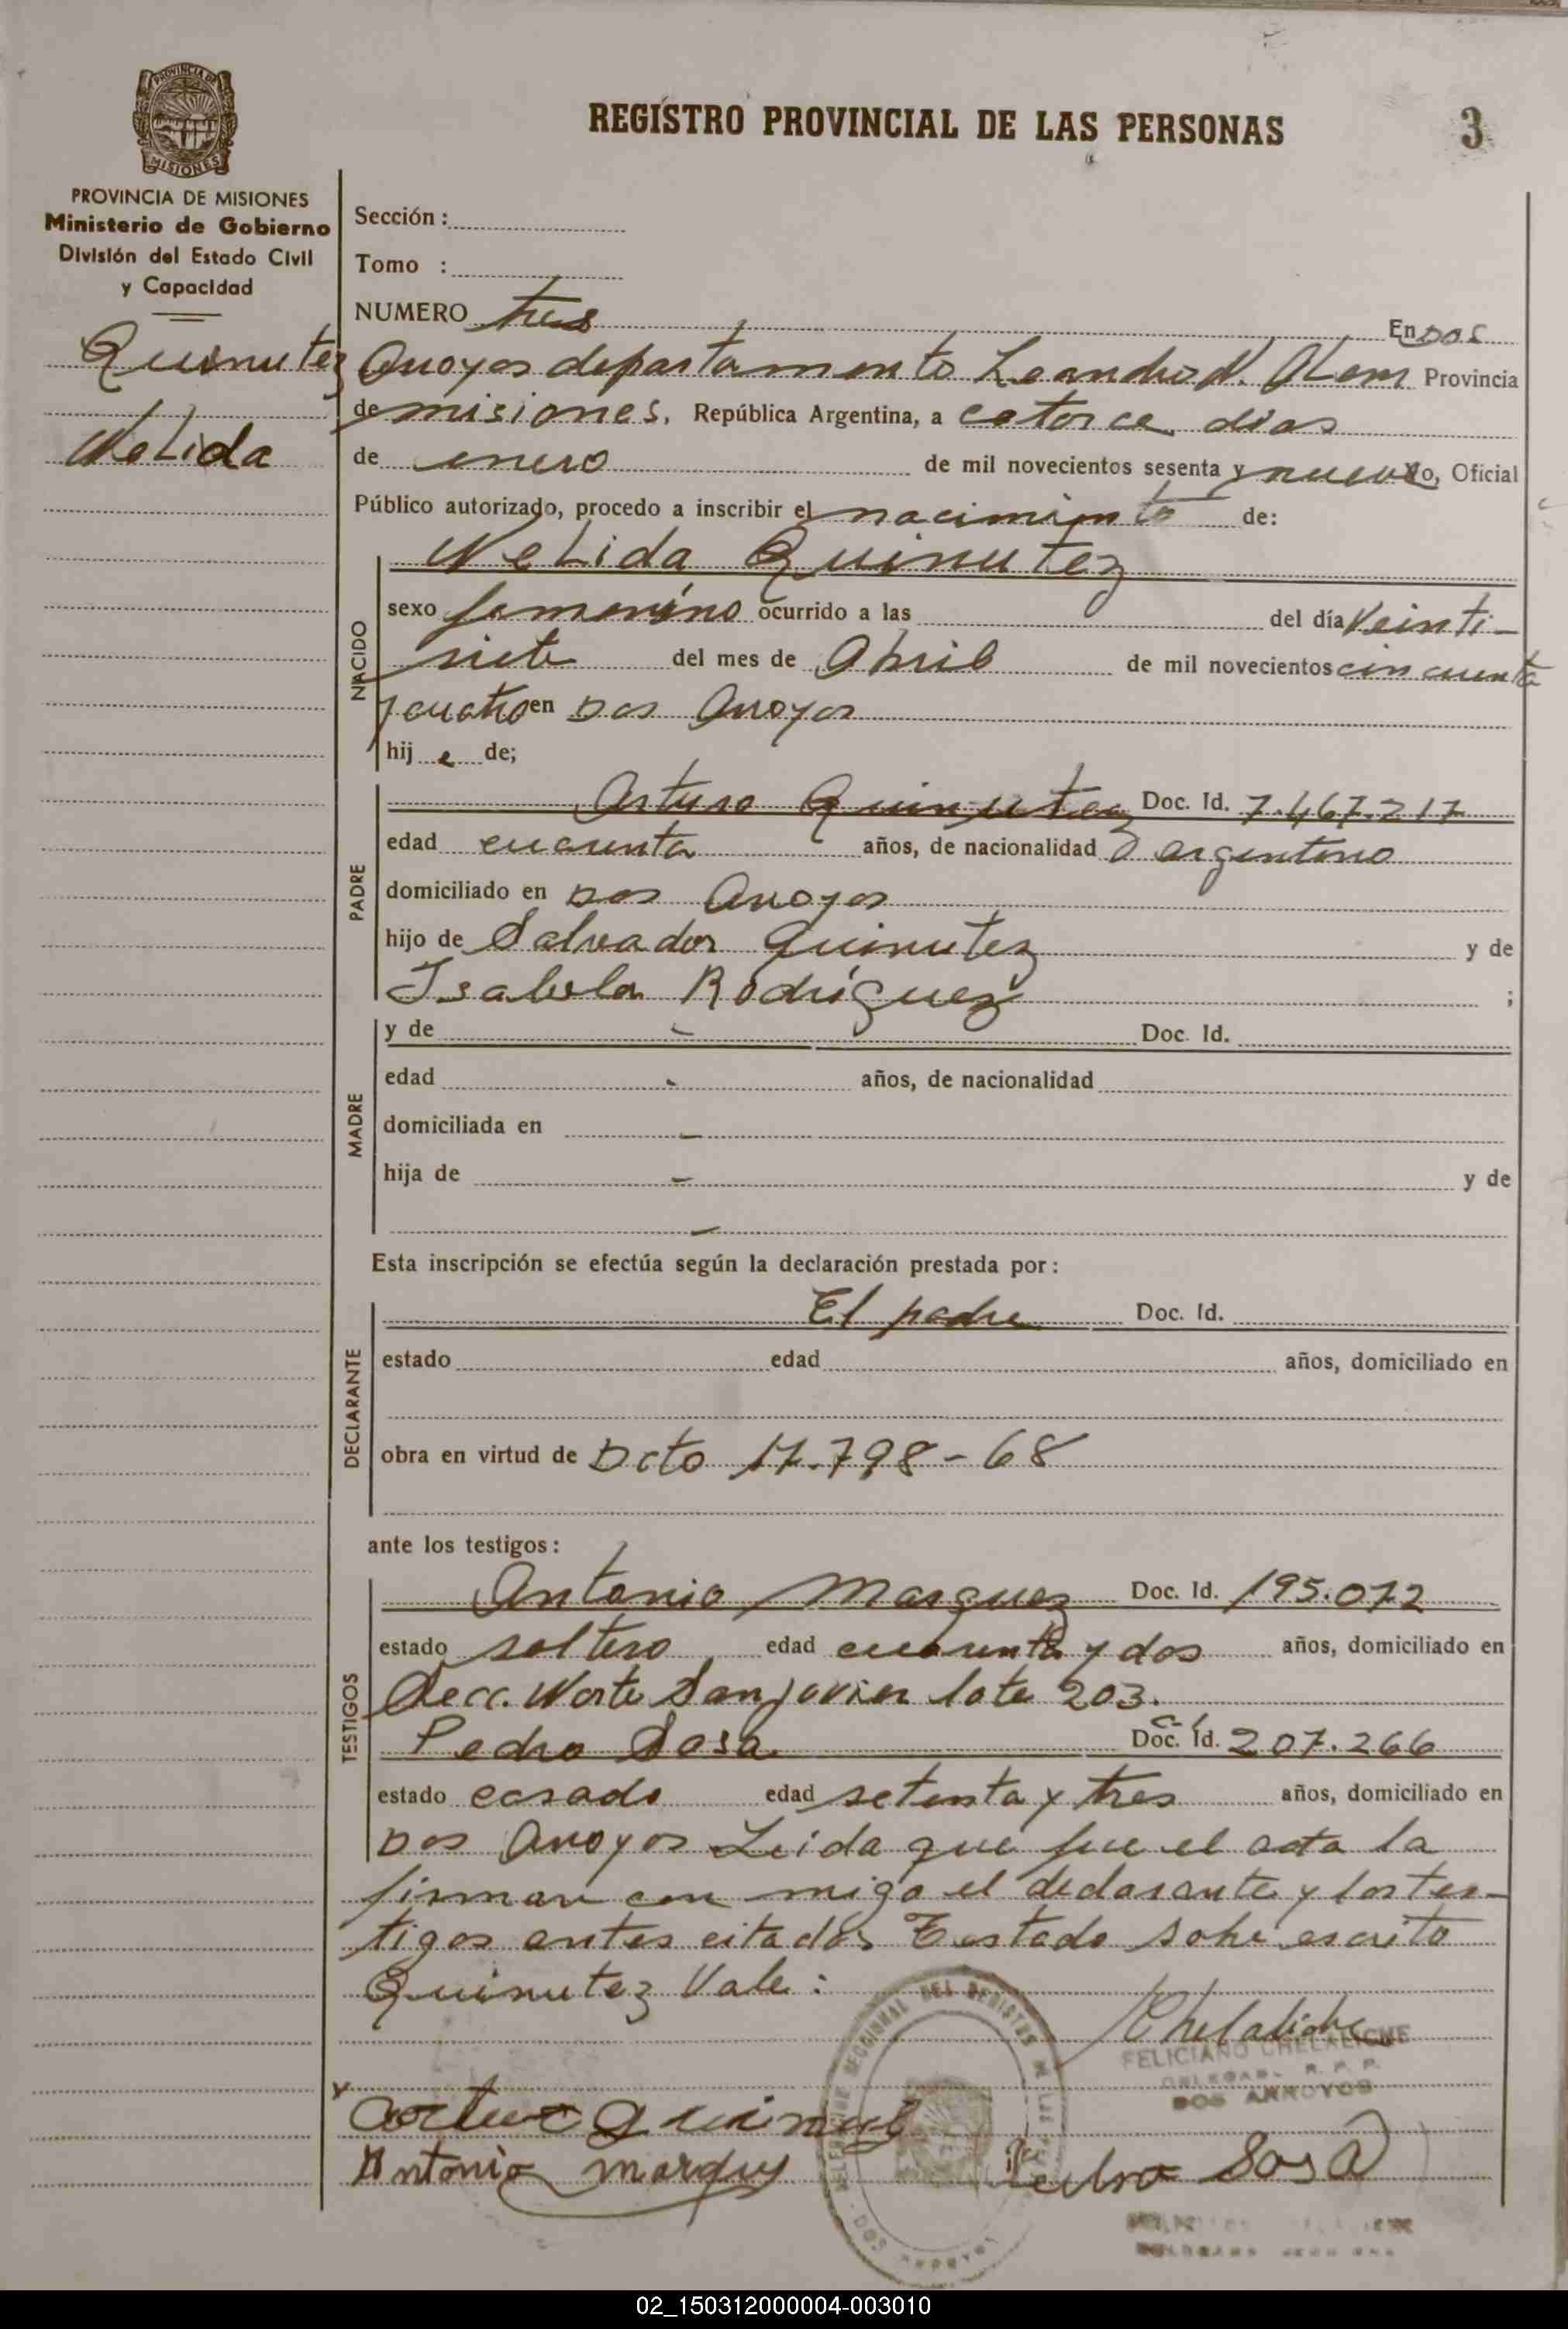 REGISTRO PROVINCIAL DE LAS PERSONAS
3
PROVINCIA DE MISIONES
PROVINCIA DE MISIONES
Ministerio de Gobierno
División del Estado Civil
y Capacidad
Quinutez
Nelida
Sección :
Tomo :
NUMERO tres En Dos
Arroyos departamento Leandro N. Alem Provincia
de misiones, República Argentina, a catorce dias
de enero de mil novecientos sesenta y nueve Yo, Oficial
Público autorizado, procedo a inscribir el nacimiento de:
NACIDO
Nelida Quinutez
sexo femenino ocurrido a las del día Veinti-
siete del mes de Abril de mil novecientos cincuenta
y cuatro en Dos Arroyos
hij a de;
PADRE
Arturo Quinutez Doc. Id. 7.467.217
edad cuarenta años, de nacionalidad argentino
domiciliado en Dos Arroyos
hijo de Salvador Quinutez y de
Isabela Rodríguez ;
MADRE
y de - Doc. Id.
edad - años, de nacionalidad
domiciliada en -
hija de - y de
-
Esta inscripción se efectúa según la declaración prestada por :
DECLARANTE
El padre Doc. Id.
estado edad años, domiciliado en
obra en virtud de Dcto 17.798-68
ante los testigos :
TESTIGOS
Antonio Marquez Doc. Id. 195.072
estado soltero edad cuarenta y dos años, domiciliado en
Secc. Norte San Javier lote 203.
Pedro Sosa C.I. Doc. Id. 207.266
estado casado edad setenta y tres años, domiciliado en
Dos Arroyos Leida que fue el acta la
firman con migo el declarante y los tes-
tigos antes citados Testado sobre escrito
Quinutez Vale :
Chelaliche
FELICIANO CHELALICHE
DELEGAD. R. P. P.
DOS ARROYOS
Antonio Marquez
Pedro Sosa
02_150312000004-003010